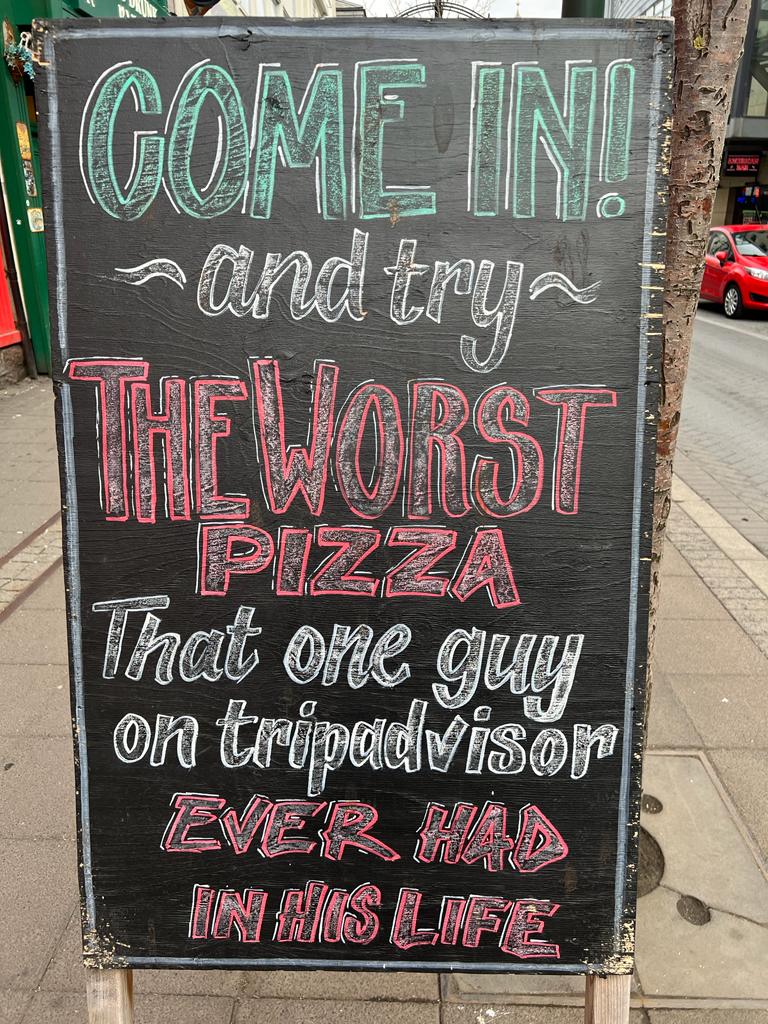 COME IN!
~and try~
THE WORST
PIZZA
That one guy
on tripadvisor
EVER HAD
IN HIS LIFE
AMERICAN
BAR